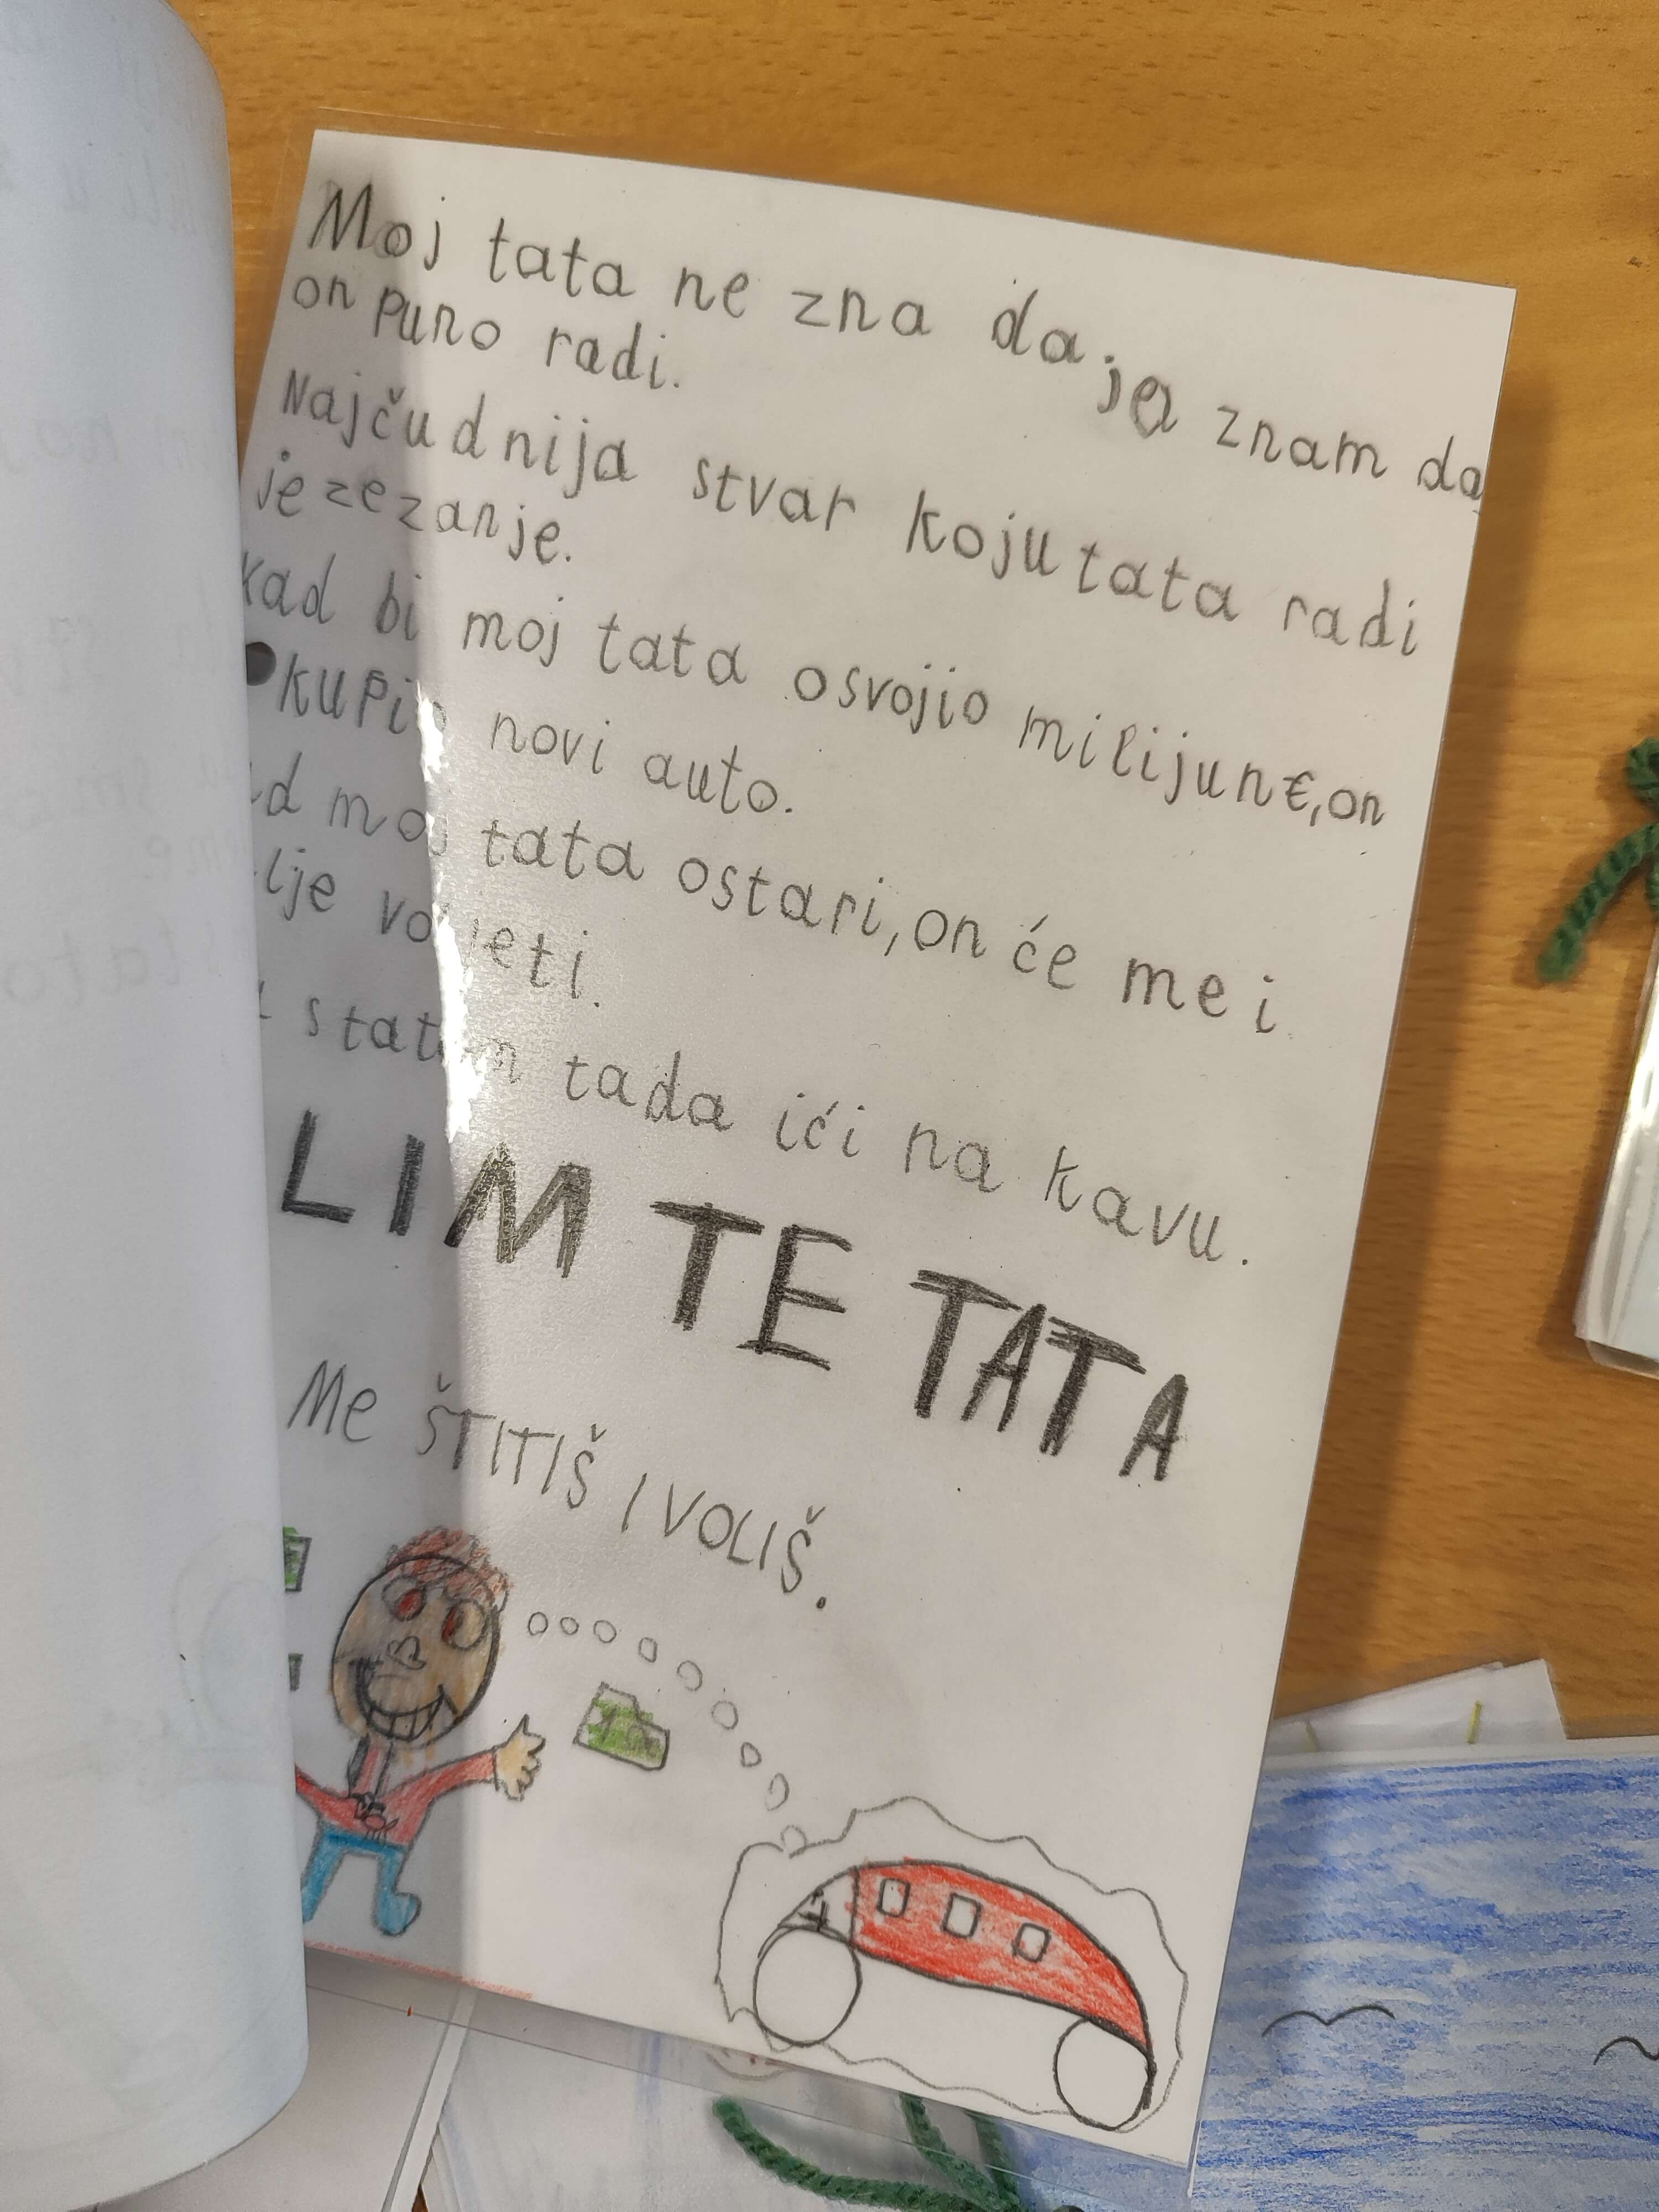 Moj tata ne zna da ja znam da
on puno radi.
Najčudnija stvar koju tata radi
je zezanje.
kad bi moj tata osvojio milijun€, on
kupio novi auto.
moj tata ostari, on će me i
voljeti.
tada ići na kavu.
LIM TE TATA
Me ŠTITIŠ I VOLIŠ.